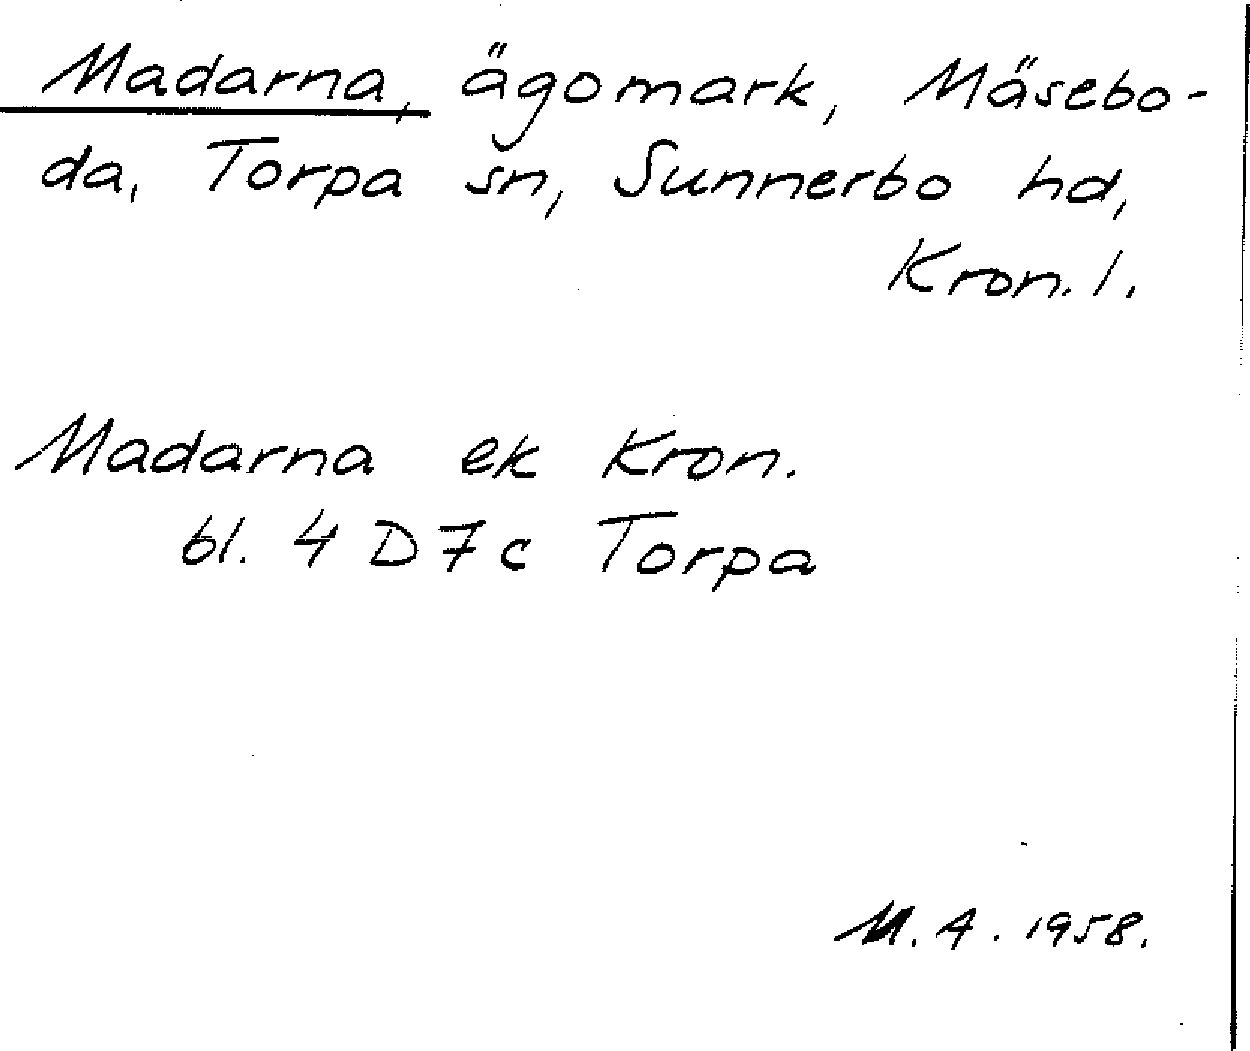 Madarna, ägomark, Mäsebo-
da, Torpa sn, Sunnerbo hd,
Kron. l.
Madarna ek Kron.
bl. 4 D 7 c Torpa
M. A. 1958.